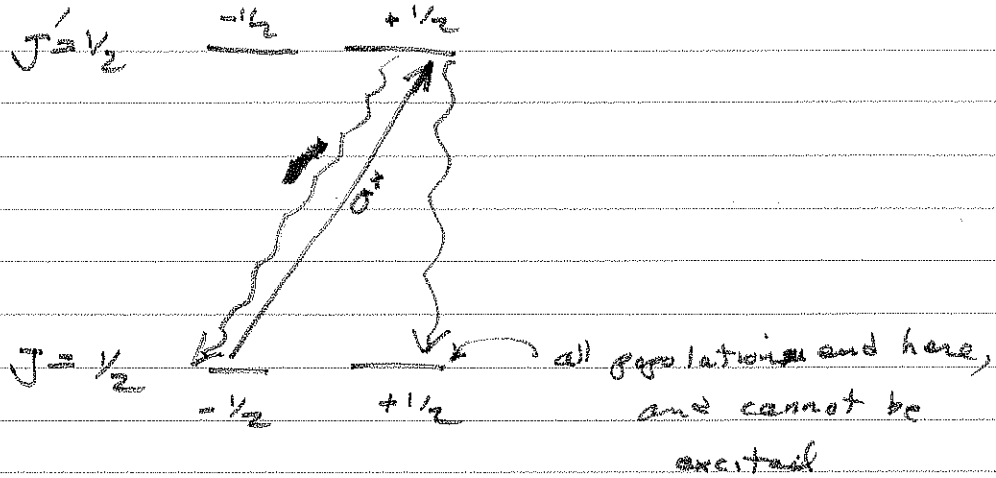 -1/2 +1/2
J'=1/2
σ+
J=1/2 all population end here,
-1/2 +1/2 and cannot be
excited